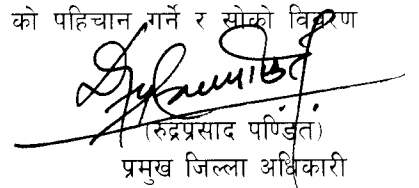 को पहिचान गर्ने र सोको विवरण
(रुद्रप्रसाद पण्डित)
प्रमुख जिल्ला अधिकारी